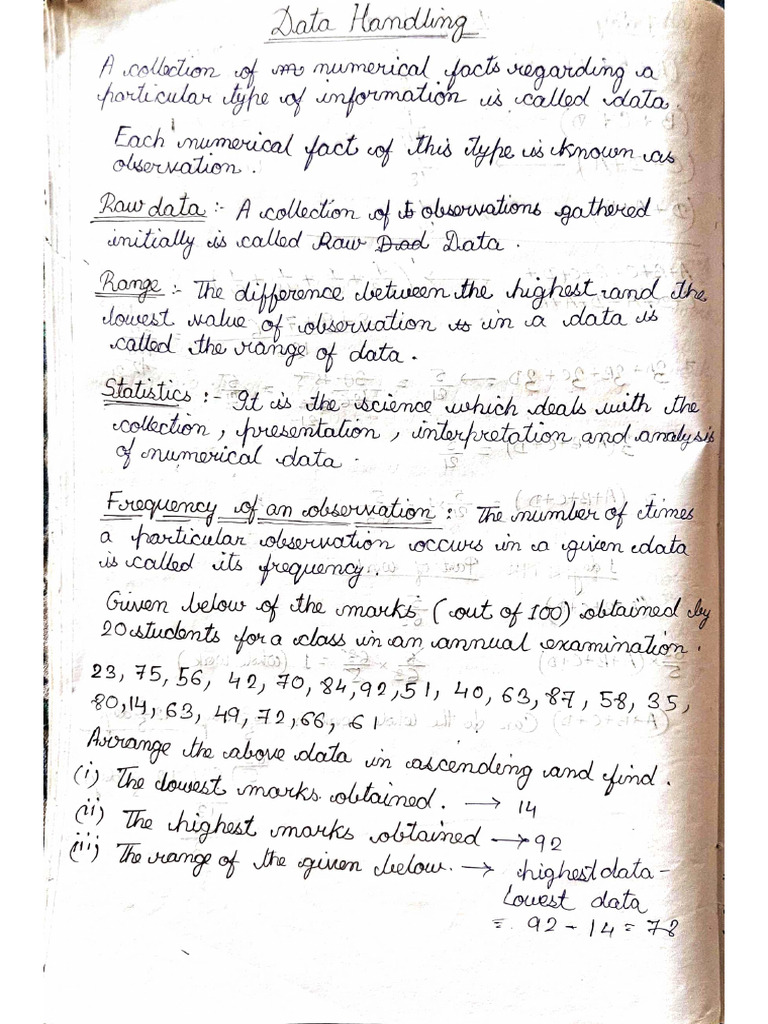 Data Handling
A collection of numerical facts regarding a
particular type of information is called data.
Each numerical fact of this type is known as
observation.
Raw data :- A collection of observations gathered
initially is called Raw Data.
Range :- The difference between the highest and the
lowest value of observation in a data is
called the range of data.
Statistics :- It is the science which deals with the
collection, presentation, interpretation and analysis
of numerical data.
Frequency of an observation : The number of times
a particular observation occurs in a given data
is called its frequency.
Given below of the marks (out of 100) obtained by
20 students for a class in an annual examination.
23, 75, 56, 42, 70, 84, 92, 51, 40, 63, 87, 58, 35,
80, 14, 63, 49, 72, 66, 61
Arrange the above data in ascending and find.
(i) The lowest marks obtained. → 14
(ii) The highest marks obtained → 92
(iii) The range of the given below. → highest data -
Lowest data
= 92 - 14 = 78